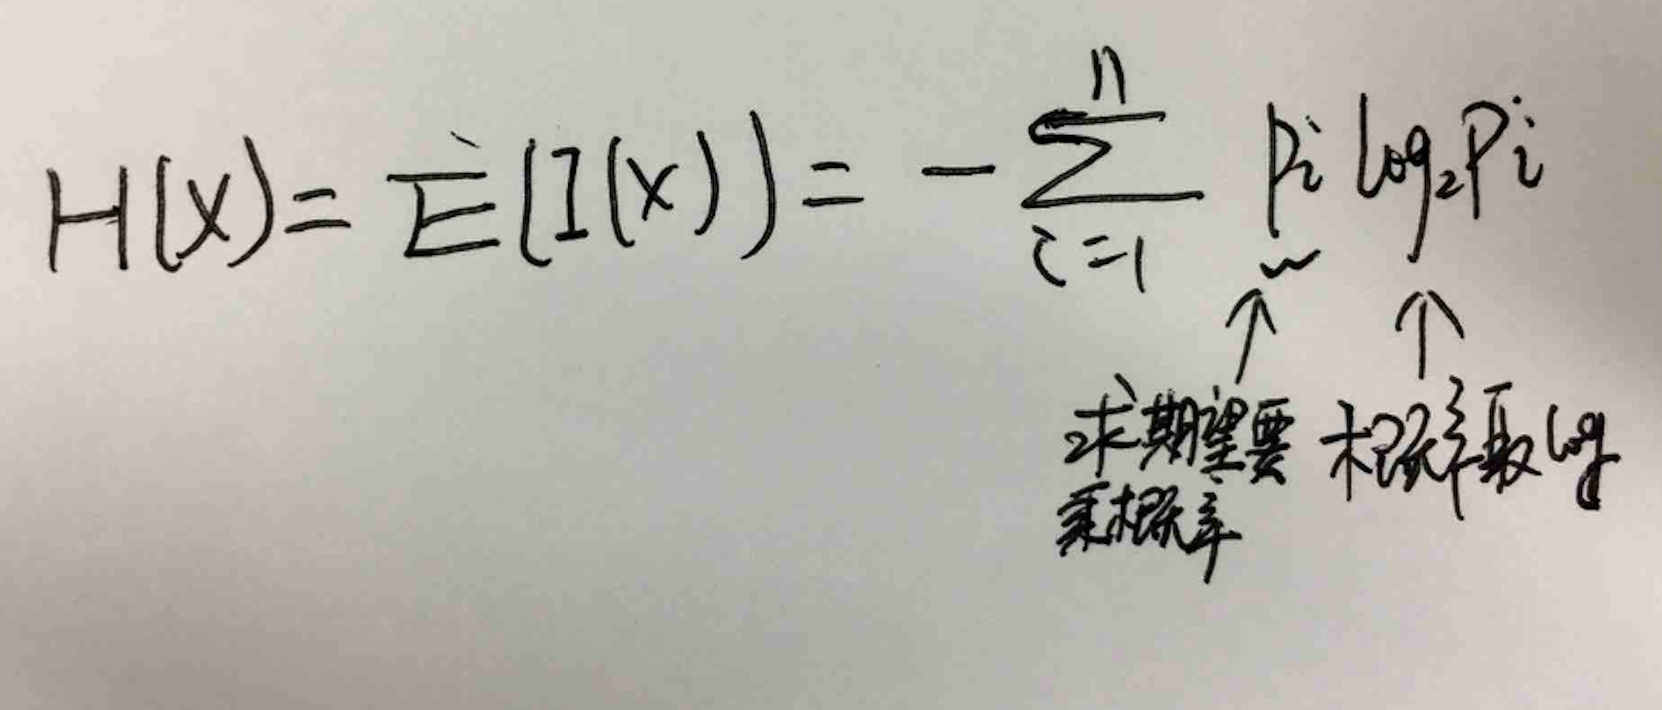 H(X) = E(I(X)) = - ∑ᵢ₌₁ⁿ pᵢ log₂pᵢ
求期望要
乘概率
概率取log